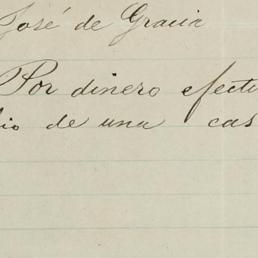 José de Gracia
Por dinero efecti
io de una cas